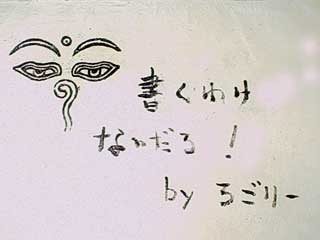 書くわけ
ないだろ！
by ろごリー